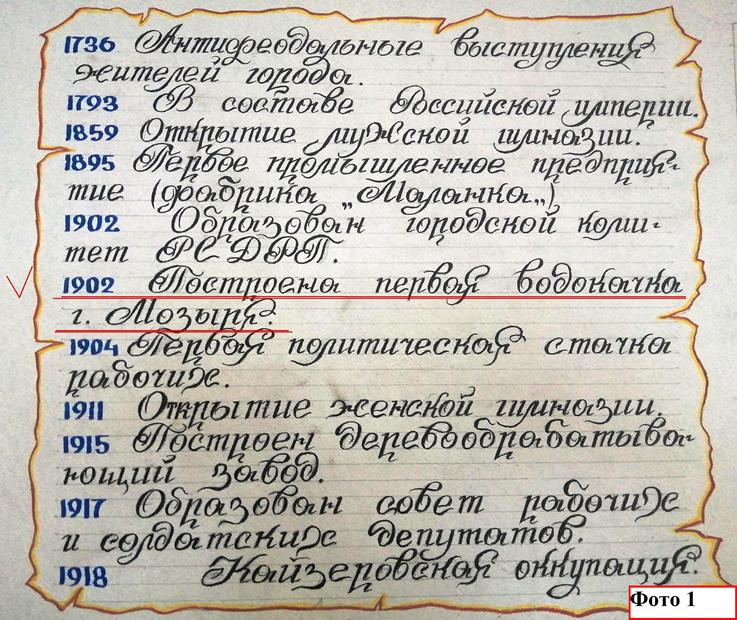 1736 Антифеодальные выступления
жителей города.
1793 В составе Российской империи.
1859 Открытие мужской гимназии.
1895 Первое промышленное предприя-
тие (фабрика „Молонка„)
1902 Образован городской коми-
тет РСДРП.
1902 Построена первая водокачка
г. Мозыря.
1904 Первая политическая стачка
рабочих.
1911 Открытие женской гимназии.
1915 Построен деревообрабатыва-
ющий завод.
1917 Образован совет рабочих
и солдатских депутатов.
1918 Кайзеровская оккупация.
Фото 1